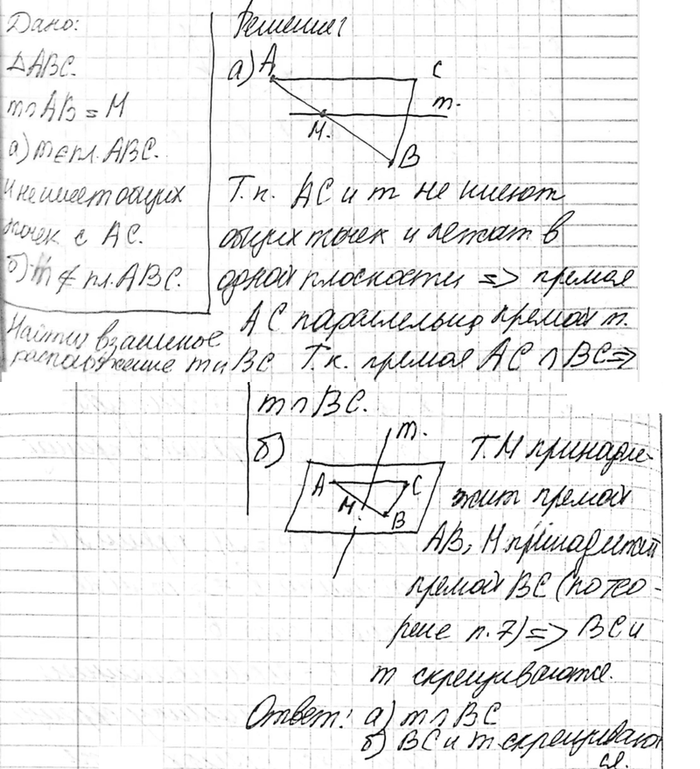 Дано:
△ABC.
m∩AB = M
а) m∈пл. ABC.
и не имеет общих
точек с AC.
б) m ∉ пл. ABC.
Найти взаимное
расположение m и BC
Решение:
а)
A
C
m.
M.
B
Т.к. AC и m не имеют
общих точек и лежат в
одной плоскости => прямая
AC параллельна прямой m.
Т.к. прямая AC ∩ BC =>
m∩BC.
б)
m.
A
C
M.
B
Т.М принадле-
жит прямой
AB, M принадлежит
прямой BC (по тео-
реме п.7) => BC и
m скрещиваются.
Ответ: а) m∩BC
б) BC и m скрещивают
ся.